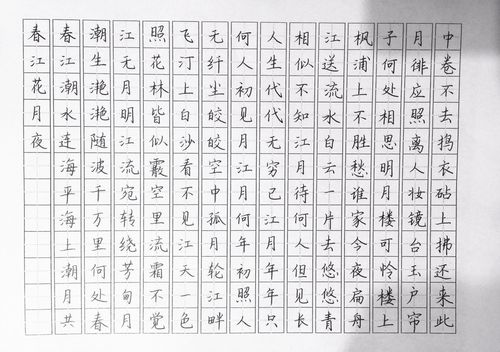 春江花月夜
春江潮水连海平海上潮月共
潮生滟滟随波千万里何处春
江无月明江流宛转绕芳甸月
照花林皆似霰空里流霜不觉
飞汀上白沙看不见江天一色
无纤尘皎皎空中孤月轮江畔
何人初见月江月何年初照人
人生代代无穷已江月年年只
相似不知江月待何人但见长
江送流水白云一片去悠悠青
枫浦上不胜愁谁家今夜扁舟
子何处相思明月楼可怜楼上
月徘应照离人妆镜台玉户帘
中卷不去捣衣砧上拂还来此